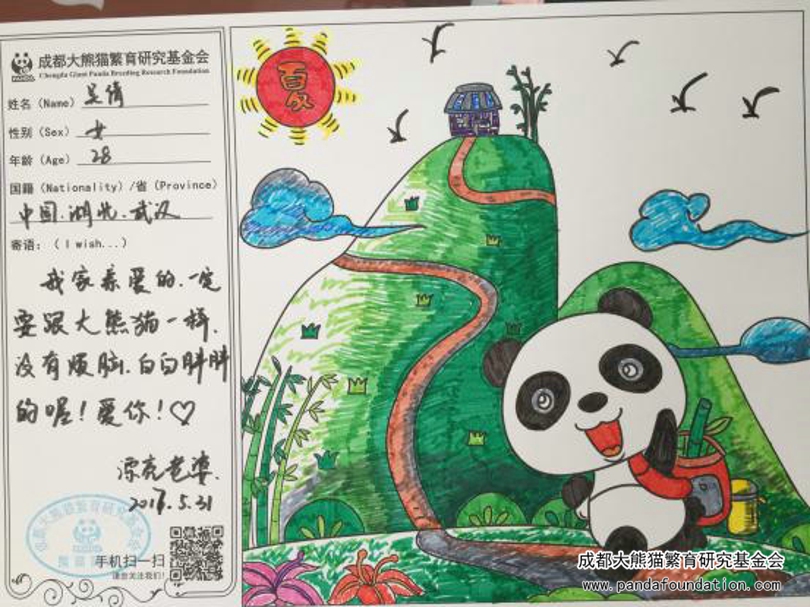 成都大熊猫繁育研究基金会
Chengdu Giant Panda Breeding Research Foundation
姓名 (Name) 吴倩
性别 (Sex) 女
年龄 (Age) 28
国籍 (Nationality) /省 (Province)
中国.湖北.武汉
寄语: ( I wish...)
我家亲爱的.一定
要跟大熊猫一样.
没有烦脑.白白胖胖
的喔!爱你!♡
漂亮老婆.
2017.5.31
手机扫一扫
请您关注我们!
夏
成都大熊猫繁育研究基金会
www.pandafoundation.com